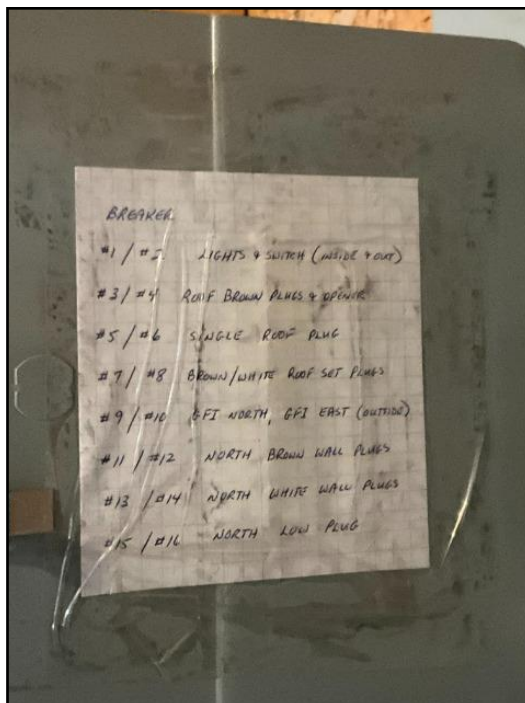 BREAKER
#1 / #2 LIGHTS & SWITCH (INSIDE & OUT)
#3 / #4 ROOF BROWN PLUGS & OPENER
#5 / #6 SINGLE ROOF PLUG
#7 / #8 BROWN/WHITE ROOF SET PLUGS
#9 / #10 GFI NORTH, GFI EAST (OUTSIDE)
#11 / #12 NORTH BROWN WALL PLUGS
#13 / #14 NORTH WHITE WALL PLUGS
#15 / #16 NORTH LOW PLUG